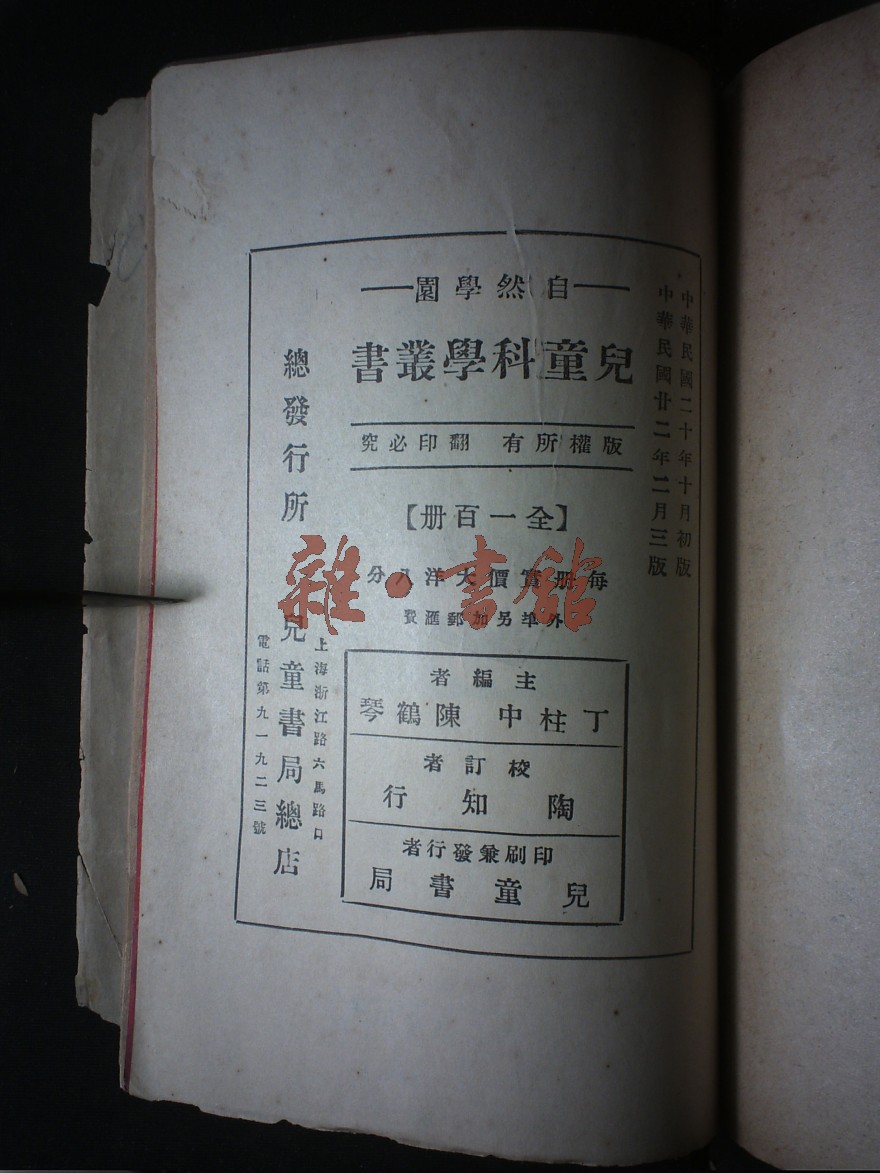 中華民國二十年十月初版
中華民國廿二年二月三版
自然學園
兒童科學叢書
版權所有 翻印必究
【全一百册】
每册實價大洋八分
外埠另加郵滙費
主編者
丁柱中 陳鶴琴
校訂者
陶知行
印刷兼發行者
兒童書局
總發行所
上海浙江路六馬路口
兒童書局總店
電話第九一九二三號
雜·書館